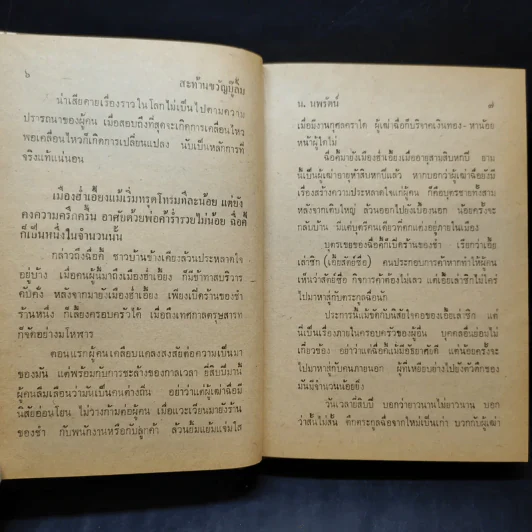 ๖
สะท้านขวัญบู๊ลิ้ม
น่าเสียดายเรื่องราวในโลกไม่เป็นไปตามความ
ปรารถนาของผู้คน เมื่อสงบถึงที่สุดจะเกิดการเคลื่อนไหว
พอเคลื่อนไหวก็เกิดการเปลี่ยนแปลง นับเป็นหลักการที่
จริงแท้แน่นอน
เมืองฮ่ำเอี้ยงแม้เริ่มทรุดโทรมทีละน้อย แต่ยัง
คงความครึกครื้น อาศัยด้วยพ่อค้าร่ำรวยไม่น้อย ฉื่อคี้
ก็เป็นหนึ่งในจำนวนนั้น
กล่าวถึงฉื่อคี้ ชาวบ้านข้างเคียงล้วนประหลาดใจ
อยู่บ้าง เมื่อคนผู้นี้มาถึงเมืองฮ่ำเอี้ยง ก็มีข้าทาสบริวาร
คับคั่ง หลังจากมายังเมืองฮ่ำเอี้ยง เพียงเปิดร้านของชำ
ร้านหนึ่ง ก็เลี้ยงครอบครัวได้ เมื่อถึงเทศกาลตรุษสารท
ก็จัดอย่างมโหฬาร
ตอนแรกผู้คนเคลือบแคลงสงสัยต่อความเป็นมา
ของมัน แต่พร้อมกับการชะล้างของกาลเวลา ยี่สิบปีมานี้
ผู้คนลืมเลือนว่ามันเป็นคนต่างถิ่น อย่าว่าแต่ผู้เฒ่าฉื่อมี
นิสัยอ่อนโยน ไม่วางก้ามต่อผู้คน เมื่อแวะเวียนมายังร้าน
ของชำ กับพนักงานหรือกับลูกค้า ล้วนยิ้มแย้มแจ่มใส
น. นพรัตน์
๗
เมื่อมีงานกุศลคราใด ผู้เฒ่าฉื่อก็บริจาคเงินทอง หาน้อย
หน้าผู้ใดไม่
ฉื่อคี้มายังเมืองฮ่ำเอี้ยงเมื่ออายุสามสิบหกปี ยาม
นี้เป็นผู้เฒ่าอายุห้าสิบหกปีแล้ว หากบอกว่าผู้เฒ่าฉื่อยังมี
เรื่องสร้างความประหลาดใจแก่ผู้คน ก็คือบุตรชายทั้งสาม
หลังจากเติบใหญ่ ล้วนออกไปยังเบื้องนอก น้อยครั้งจะ
กลับบ้าน มีแต่บุตรีคนเดียวที่ตบแต่งอยู่ภายในเมือง
บุตรเขยของฉื่อคี้ก็เปิดร้านของชำ เรียกว่าเอี้ย
เล่าซิก (เอี้ยสัตย์ซื่อ) คนประกอบการค้าหากทำให้ผู้คน
เห็นว่าสัตย์ซื่อ กิจการค้าต้องไม่เลว แต่เอี้ยเล่าซิกไม่ใคร่
ไปมาหาสู่กับตระกูลฉื่อนัก
ประการนี้แม้ขัดกับนิสัยใจคอของเอี้ยเล่าซิก แต่
นี่เป็นเรื่องภายในครอบครัวของผู้อื่น บุคคลอื่นย่อมไม่
เกี่ยวข้อง อย่าว่าแต่ฉื่อคี้แม้มีอัธยาศัยดี แต่น้อยครั้งจะ
ไปมาหาสู่กับคนภายนอก ผู้ที่เหยียบย่างไปยังตัวตึกของ
มันมีจำนวนน้อยยิ่ง
วันเวลายี่สิบปี บอกว่ายาวนานไม่ยาวนาน บอก
ว่าสั้นไม่สั้น ตึกตระกูลฉื่อจากใหม่เป็นเก่า บวกกับผู้เฒ่า